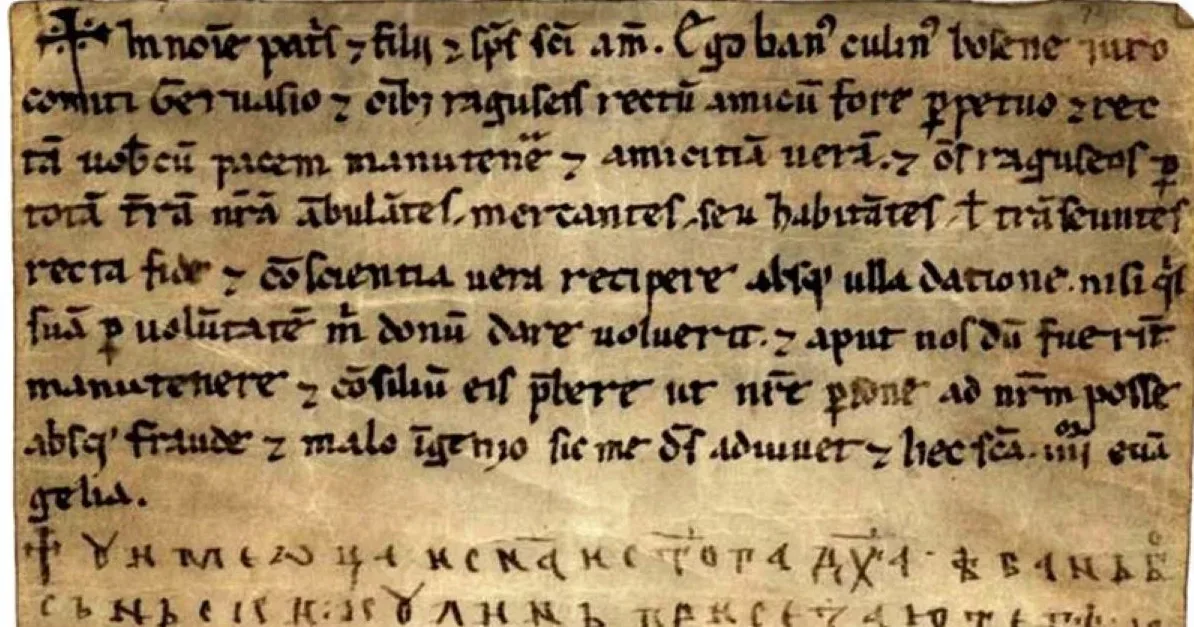 ✝ In noīe pat̄s ⁊ filij ⁊ sp̄s sc̄i am̄. Ego ban' culin' bosene iuro
comiti Geruasio ⁊ oīb; raguseis rectū amicū fore ꝑpetuo ⁊ rec
tā uob̄cū pacem manutenē ⁊ amicitiā uerā. ⁊ ōs raguseos ꝑ
totā t̄rā nr̄ā ābulātes. mercantes. seu habitātes ł trāseuntes
recta fide ⁊ cōscientia uera recipere absq' ulla datione. nisi qis
suā ꝑ uolūtatē m̄ donū dare uoluerit. ⁊ aput nos dū fuerīt
manutenere ⁊ cōsiliū eis p̄bere ut nr̄e ꝑsone ad nr̄m posse
absq' fraude ⁊ malo īgenio sic me ds̄ adiuuet ⁊ hec sc̄a. iiiior euā
gelia.
✝ Ꙋ име ѡца и сн҃а и ст҃ога дх҃а · ѣ бань бо
сьньски : кꙋлинь присезаю